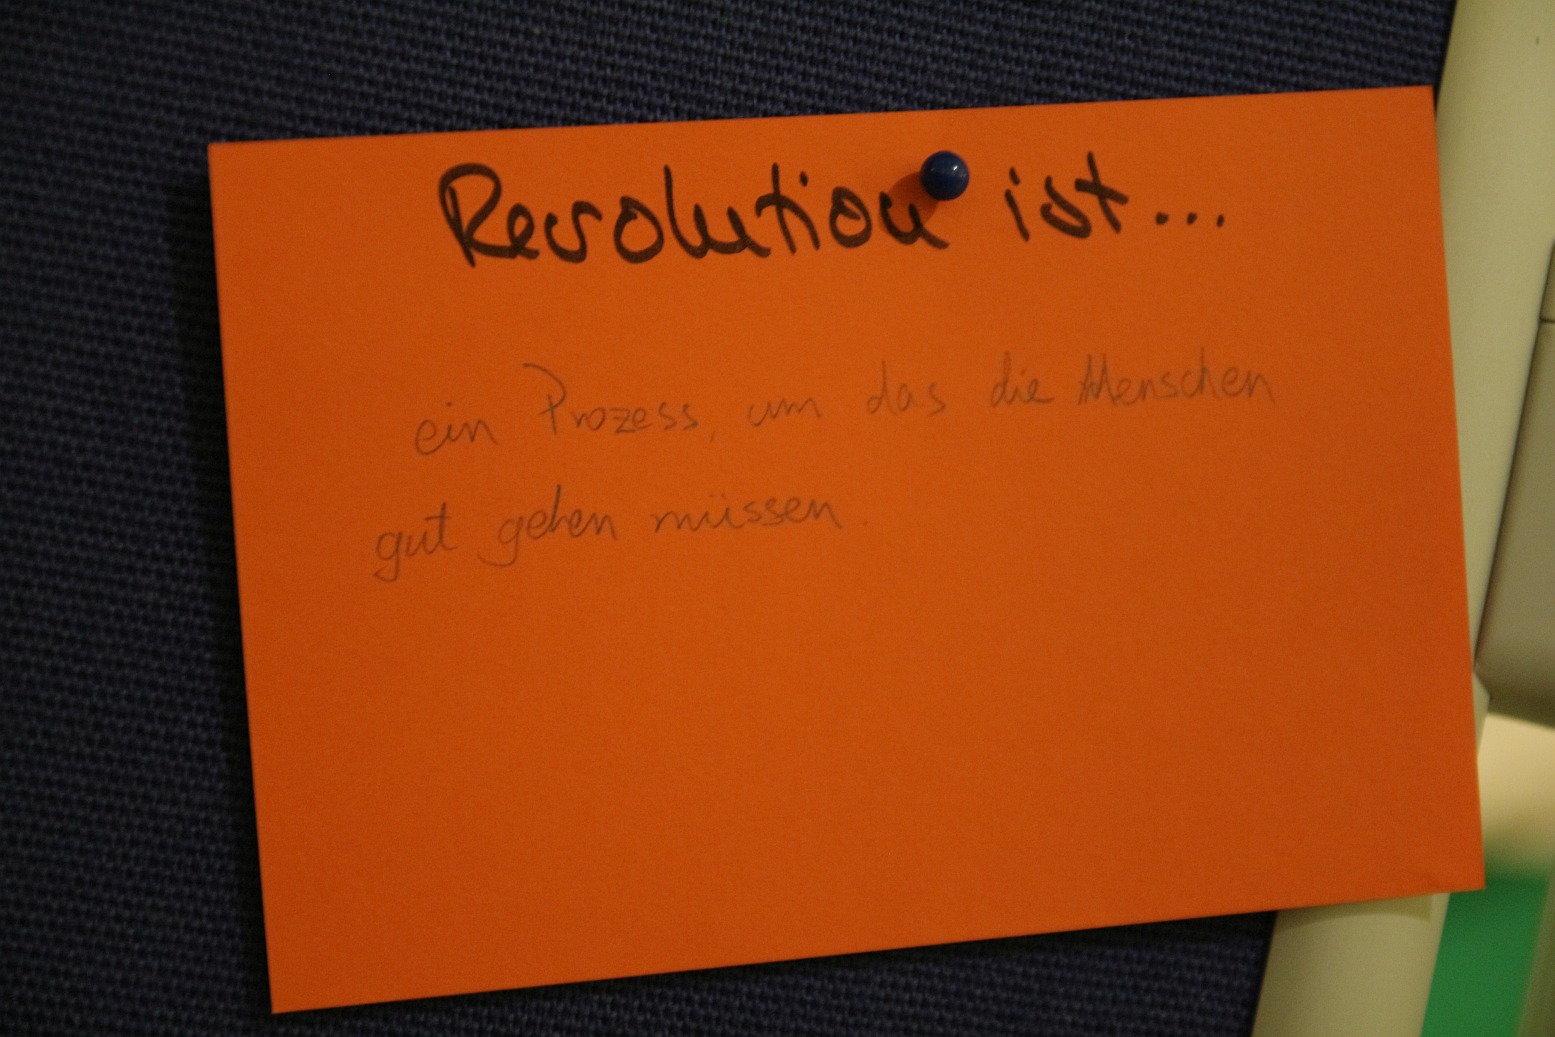 Revolution ist...
ein Prozess, um das die Menschen
gut gehen müssen.